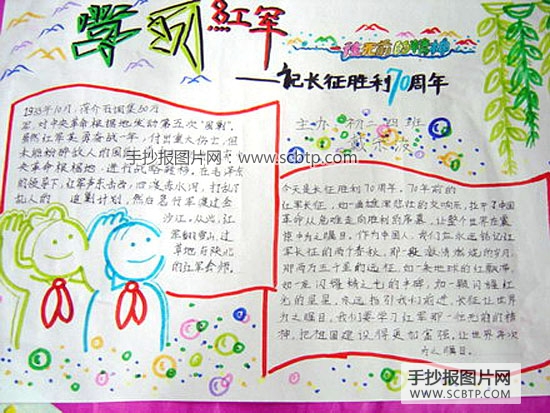 学习红军
一往无前的精神
——记长征胜利70周年
主办 初一四班
手抄报图片网 www.scbtp.com
1933年10月,蒋介石调集50万
军对中央革命根据地发动第五次“围剿”。
虽然红军英勇奋战一年,付出重大伤亡,但
未能粉碎敌人的围
央革命根据地,进行战略转移。在毛泽东
的领导下,红军声东击西,四渡赤水河,打乱了
敌人的 追剿计划,然后急行军渡过金
沙江。从此,红
军翻雪山,过
草地在陕北
的红军会师。
今天是长征胜利70周年。70年前的
红军长征,如一曲雄浑悲壮的交响乐,拉开了中国
革命从危难走向胜利的序幕,让整个世界在震
惊中为之瞩目。作为中国人,我们应永远铭记红
军长征的两个春秋,那一段激情燃烧的岁月。
那两万五千里的远征,如一条地球的红飘带,
如一座闪耀
光的星星,永远指引我们前进,长征让世界
为之瞩目。我们要学习红军那一往无前的精
神,把祖国建设得更加富强,让世界再次
为之瞩目。
手抄报图片网
WWW.SCBTP.COM